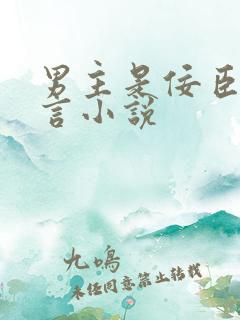 男主是佞臣
言小说
九鸣
未经同意禁止转载